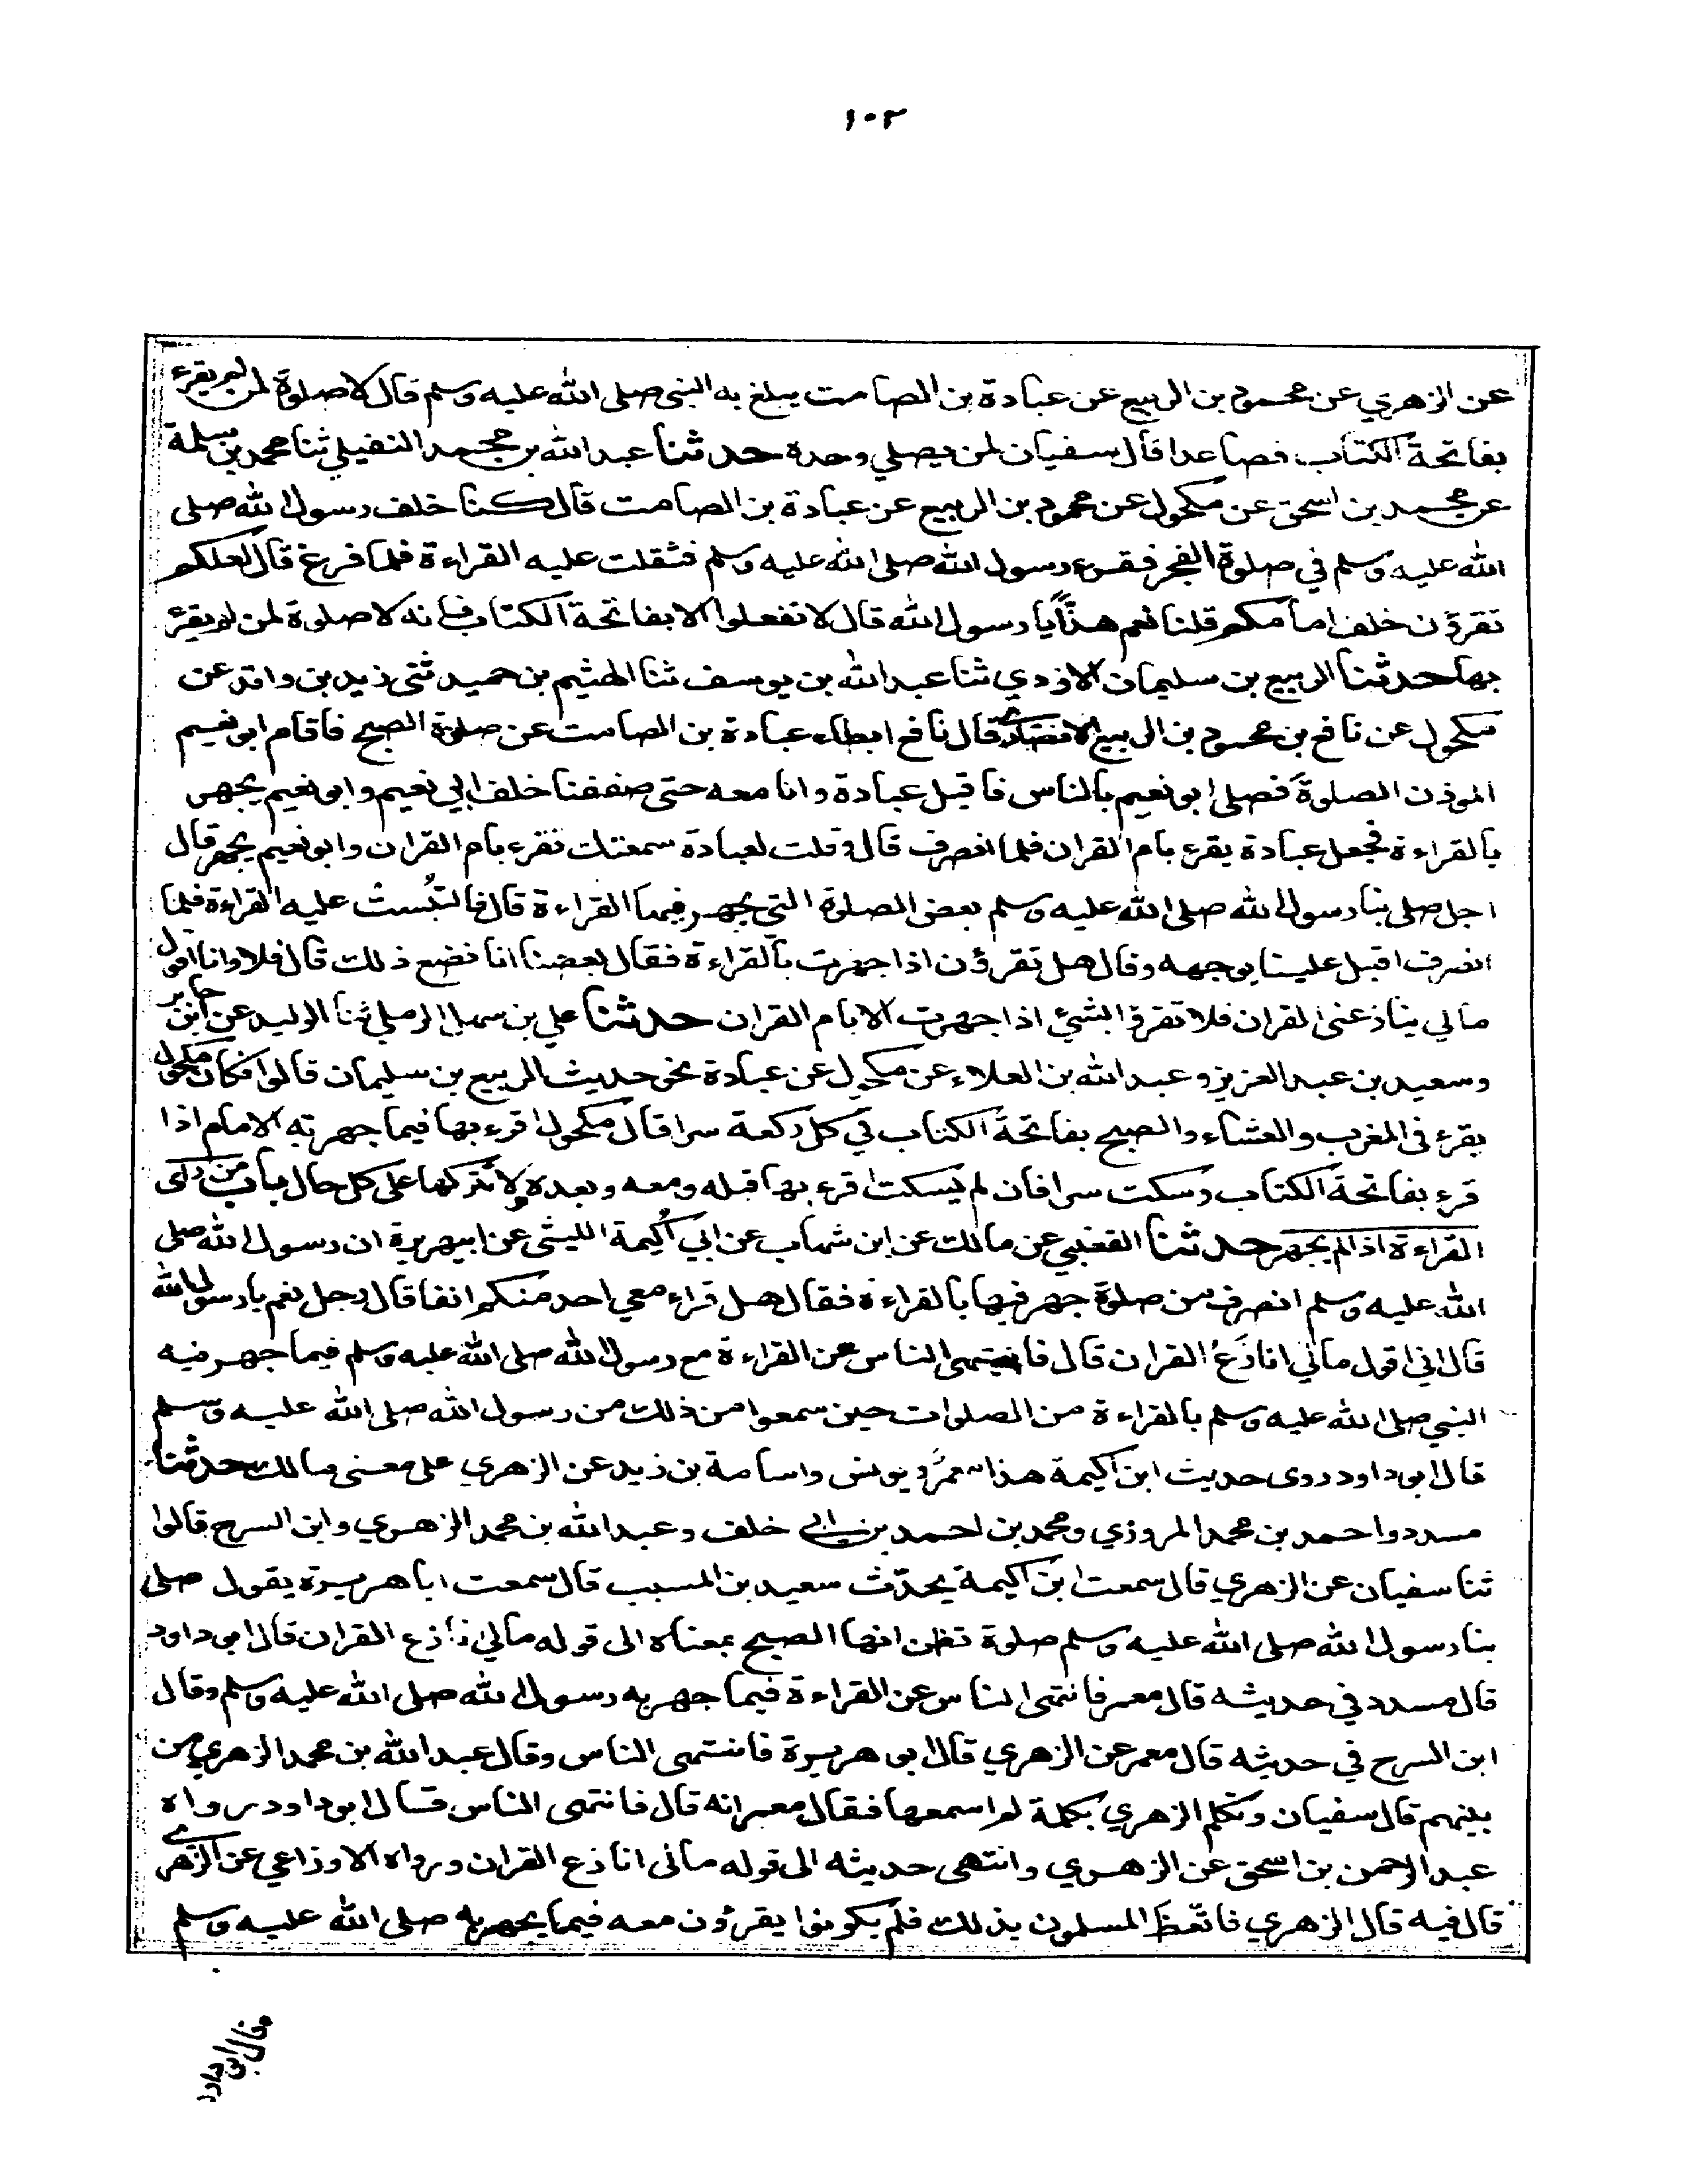 ١٠٢
عن الزهري عن محمود بن الربيع عن عبادة بن الصامت يبلغ به النبي صلى الله عليه وسلم قال لا صلوة لمن لم يقرء
بفاتحة الكتاب فصاعدا قال سفيان لمن يصلي وحده حدثنا عبد الله بن محمد النفيلي ثنا محمد بن سلمة
عن محمد بن اسحق عن مكحول عن محمود بن الربيع عن عبادة بن الصامت قال كنا خلف رسول الله صلى
الله عليه وسلم في صلوة الفجر فقرء رسول الله صلى الله عليه وسلم فثقلت عليه القراءة فلما فرغ قال لعلكم
تقرؤن خلف امامكم قلنا نعم هذّاً يا رسول الله قال لا تفعلوا الا بفاتحة الكتاب فانه لا صلوة لمن لم يقرء
بها حدثنا الربيع بن سليمان الازدي ثنا عبد الله بن يوسف ثنا الهيثم بن حميد ثنى زيد بن واقد عن
مكحول عن نافع بن محمود بن الربيع الانصاري قال نافع ابطاء عبادة بن الصامت عن صلوة الصبح فاقام ابو نعيم
الموذن الصلوة فصلى ابو نعيم بالناس فاقبل عبادة وانا معه حتى صففنا خلف ابي نعيم وابو نعيم يجهر
بالقراءة فجعل عبادة يقرء بام القران فلما انصرف قال قلت لعبادة سمعتك تقرء بام القران وابو نعيم يجهر قال
اجل صلى بنا رسول الله صلى الله عليه وسلم بعض الصلوة التي يجهر فيها القراءة قال فالتبست عليه القراءة فلما
انصرف اقبل علينا بوجهه وقال هل تقرؤن اذا جهرت بالقراءة فقال بعضنا انا نضع ذلك قال فلا وانا اقول
مالي ينازعني القران فلا تقرؤا بشئ اذا جهرت الا بام القران حدثنا علي بن سهل الرملي ثنا الوليد عن ابن جابر
وسعيد بن عبد العزيز وعبد الله بن العلاء عن مكحول عن عبادة نحو حديث الربيع بن سليمان قالوا فكان مكحول
يقرء في المغرب والعشاء والصبح بفاتحة الكتاب في كل ركعة سرا قال مكحول اقرء بها فيما جهر به الامام اذا
قرء بفاتحة الكتاب وسكت سرا فان لم يسكت اقرء بها قبله ومعه وبعده ولا تتركها على كل حال باب من راى
القراءة اذا لم يجهر حدثنا القعنبي عن مالك عن ابن شهاب عن ابي اُكيمة الليثي عن ابي هريرة ان رسول الله صلى
الله عليه وسلم انصرف من صلوة جهر فيها بالقراءة فقال هل قراء معي احد منكم انفا قال رجل نعم يا رسول الله
قال اني اقول مالي انازَعُ القران قال فانتهى الناس عن القراءة مع رسول الله صلى الله عليه وسلم فيما جهر فيه
النبي صلى الله عليه وسلم بالقراءة من الصلوات حين سمعوا من ذلك من رسول الله صلى الله عليه وسلم
قال ابو داود روى حديث ابن اكيمة هذا معمرٌ ويونس واسامة بن زيد عن الزهري على معنى مالك حدثنا
مسدد واحمد بن محمد المروزي ومحمد بن احمد بن ابي خلف وعبد الله بن محمد الزهري وابن السرح قالوا
ثنا سفيان عن الزهري قال سمعت ابن اكيمة يحدّث سعيد بن المسيب قال سمعت ابا هريرة يقول صلى
بنا رسول الله صلى الله عليه وسلم صلوة نظن انها الصبح بمعناه الى قوله مالي انازع القران قال ابو داود
قال مسدد في حديثه قال معمر فانتهى الناس عن القراءة فيما جهر به رسول الله صلى الله عليه وسلم وقال
ابن السرح في حديثه قال معمر عن الزهري قال ابو هريرة فانتهى الناس وقال عبد الله بن محمد الزهري من
بينهم قال سفيان وتكلم الزهري بكلمة لم اسمعها فقال معمر انه قال فانتهى الناس قال ابو داود رواه
عبد الرحمن بن اسحق عن الزهري وانتهى حديثه الى قوله مالى انازع القران ورواه الاوزاعي عن الزهري
قال فيه قال الزهري فاتّعظ المسلمون بذلك فلم يكونوا يقرؤن معه فيما يجهر به صلى الله عليه وسلم
قال ابو داود